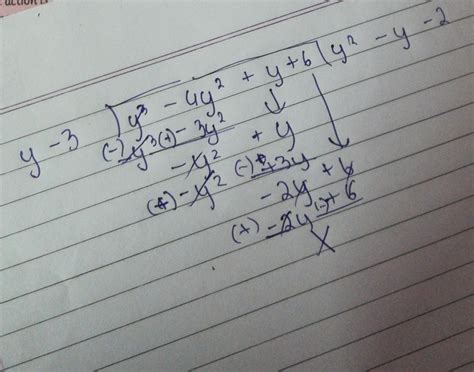 y - 3 ) y³ - 4y² + y + 6 ( y² - y - 2
(-) y³ (+) - 3y²
- y² + y
(+) - y² (-) + 3y
- 2y + 6
(+) - 2y (-) + 6
x